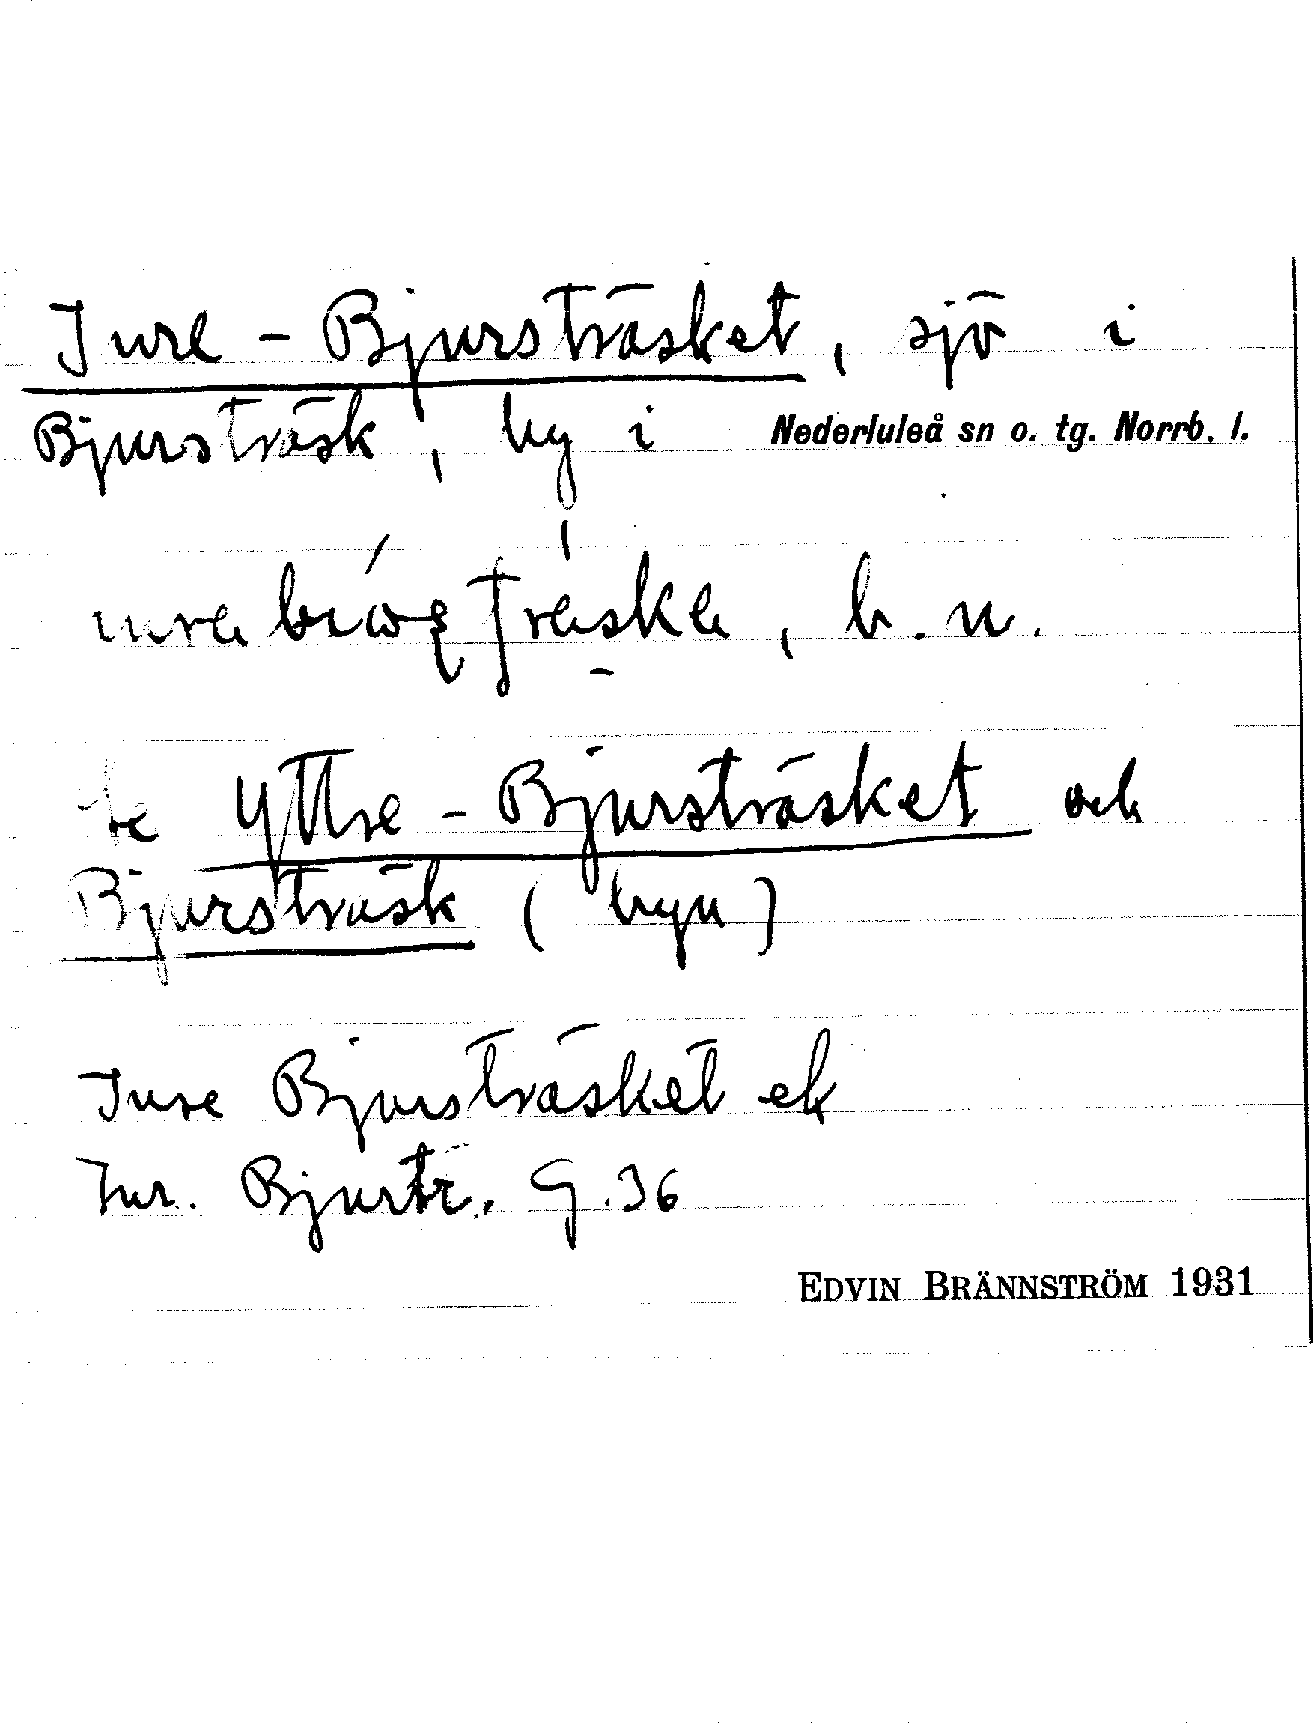 Inre-Bjursträsket, sjö i
Bjursträsk, by i Nederluleå sn o. tg. Norrb. l.
b. n.
se Yttre-Bjursträsket och
Bjursträsk (byn)
Inre Bjursträsket ek
Inr. Bjurtr. G. 36
EDVIN BRÄNNSTRÖM 1931